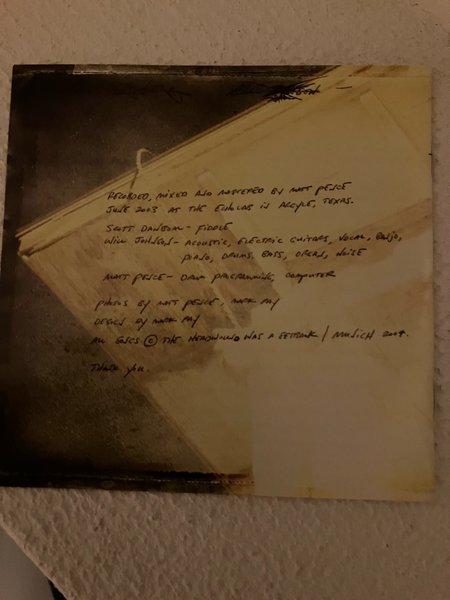 RECORDED, MIXED AND MASTERED BY MATT PENCE
JUNE 2003 AT THE ECHOLAB IN ARGYLE, TEXAS.
SCOTT DANBOM - FIDDLE
WILL JOHNSON - ACOUSTIC, ELECTRIC GUITARS, VOCAL, BANJO,
PIANO, DRUMS, BASS, ORGAN, NOISE
MATT PENCE - DRUM PROGRAMMING, COMPUTER
PHOTOS BY MATT PENCE, MARK RAY
DESIGN BY MARK RAY
ALL SONGS © THE HEADWOUND WAS A SETBACK / MUSICH 2004.
THANK YOU.